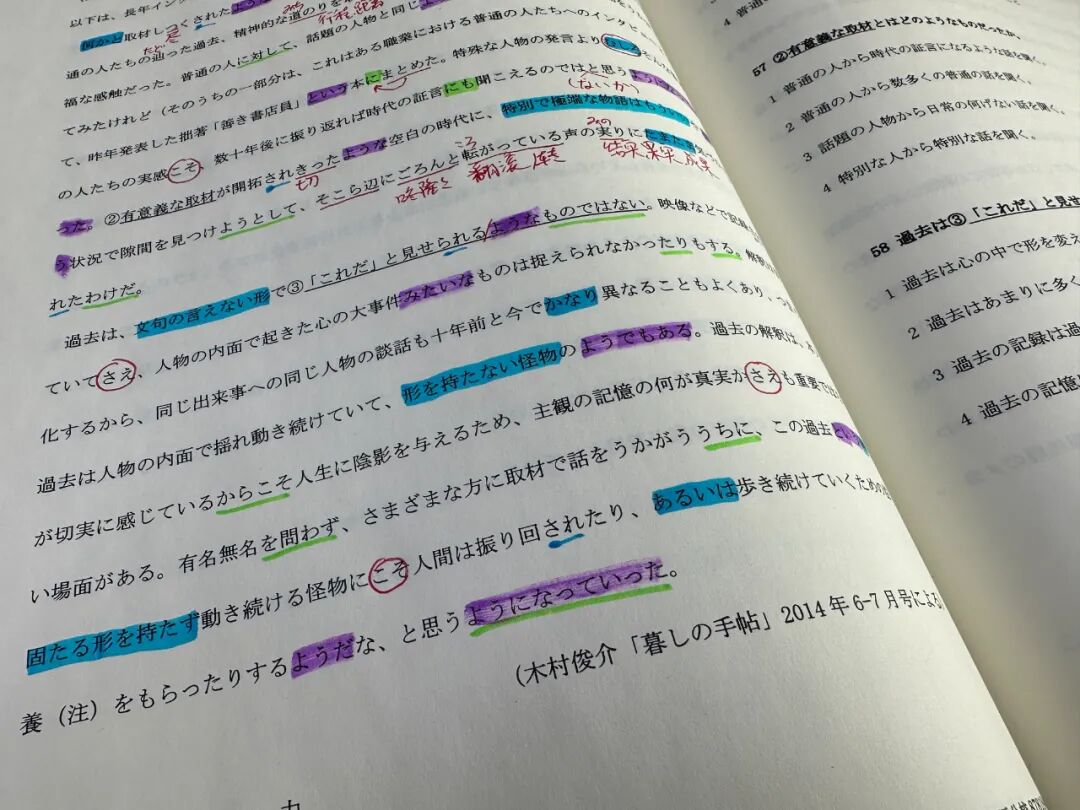 以下は、長年イン
何かと取材しつくされたよう
精神的な道のりを
行程 距離
通の人たちの辿った過去、
話題の人物と同じよ
福な感触だった。普通の人に対して、
これはある職業における普通の人たちへのインタビ
てみたけれど(そのうちの一部分は、
特殊な人物の発言よりむしろ
て、昨年発表した拙著「善き書店員」という本にまとめた。
の人たちの実感こそ、数十年後に振り返れば時代の証言にも聞こえるのではと思う
(ないか)
った。②有意義な取材が開拓されきったような空白の時代に、特別で極端な物語はもう
切
う状況で隙間を見つけようとして、そこら辺にごろんと転がっている声の実りにたまに
翻滚
結果 果実 成果
れたわけだ。
過去は、文句の言えない形で③「これだ」と見せられるようなものではない。映像などで記録
ていてさえ、人物の内面で起きた心の大事件みたいなものは捉えられなかったりもする。解釈
化するから、同じ出来事への同じ人物の談話も十年前と今でかなり異なることもよくあり、つ
過去は人物の内面で揺れ動き続けていて、形を持たない怪物のようでもある。過去の解釈は、
が切実に感じているからこそ人生に陰影を与えるため、主観の記憶の何が真実かさえも重要では
い場面がある。有名無名を問わず、さまざまな方に取材で話をうかがううちに、この過去とい
固たる形を持たず動き続ける怪物にこそ人間は振り回されたり、あるいは歩き続けていくための
養(注)をもらったりするようだな、と思うようになっていった。
(木村俊介「暮しの手帖」2014年6-7月号による
57 ②有意義な取材とはどのようなもの
1 普通の人から時代の証言になるような話を聞く。
2 普通の人から数多くの普通の話を聞く。
3 話題の人物から日常の何げない話を聞く。
4 特別な人から特別な話を聞く。
58 過去は③「これだ」と見せ
1 過去は心の中で形を変え
2 過去はあまりに多く
3 過去の記録は過
4 過去の記憶